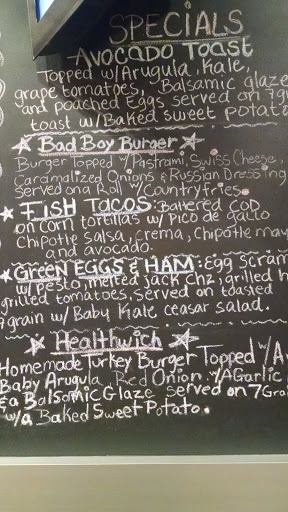 SPECIALS
AVOCADO TOAST
Topped w/Arugula, Kale,
grape tomatoes, Balsamic glaze
and poached Eggs served on 7gr
toast w/Baked sweet potato
Bad Boy Burger
Burger topped w/Pastrami, Swiss Cheese,
Caramalized Onions & Russian Dressing
served on a Roll w/Country fries.
FISH TACOS: Battered COD
on corn tortillas w/ Pico de gallo
Chipotle salsa, crema, Chipotle may
and avocado.
GREEN EGGS & HAM: Egg scram
w/pesto, melted jack chz, grilled h
grilled tomatoes, Served on toasted
7grain w/ Baby Kale ceasar salad.
Healthwich
Homemade Turkey Burger Topped w/A
Baby Arugula, Red Onion w/A Garlic
& a Balsamic Glaze served on 7Grai
w/a Baked Sweet Potato.